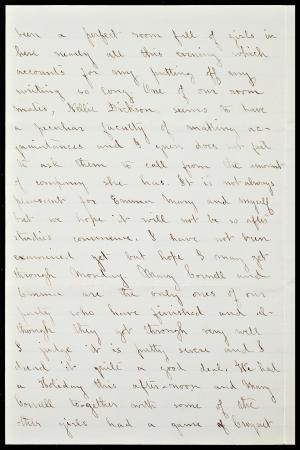 been a perfect room full of girls in
here nearly all this evening which
accounts for my putting off my
writing so long. One of our room
mates, Nellie Dickson, seems to have
a peculiar faculty of making ac-
quaintances and I guess does not fail
to ask them to call from the amount
of company she has. It is not always
pleasant for Emma Mary and myself
but we hope it will not be so after
studies commence. I have not been
examined yet but hope I may get
through Monday. Mary Cornell and
Emma are the only ones of our
party who have finished and al-
though they got through very well
I judge it is pretty severe and I
dread it quite a good deal. We had
a Holiday this after-noon and Mary
Cornell together with some of the
other girls had a game of Croquet